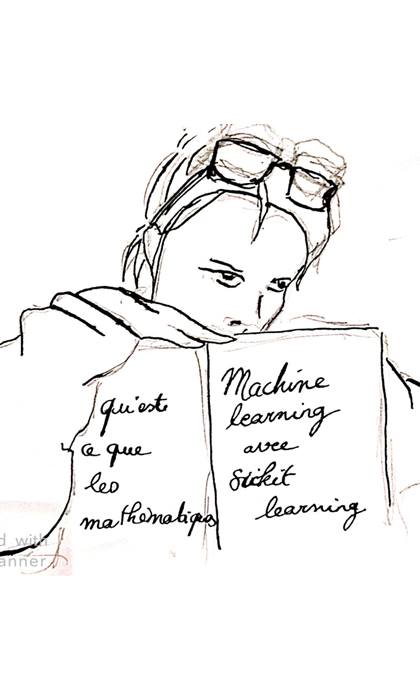 qu'este
ce que
les
mathématiques
Machine
learning
avec
Scikit
learning
d with
anner